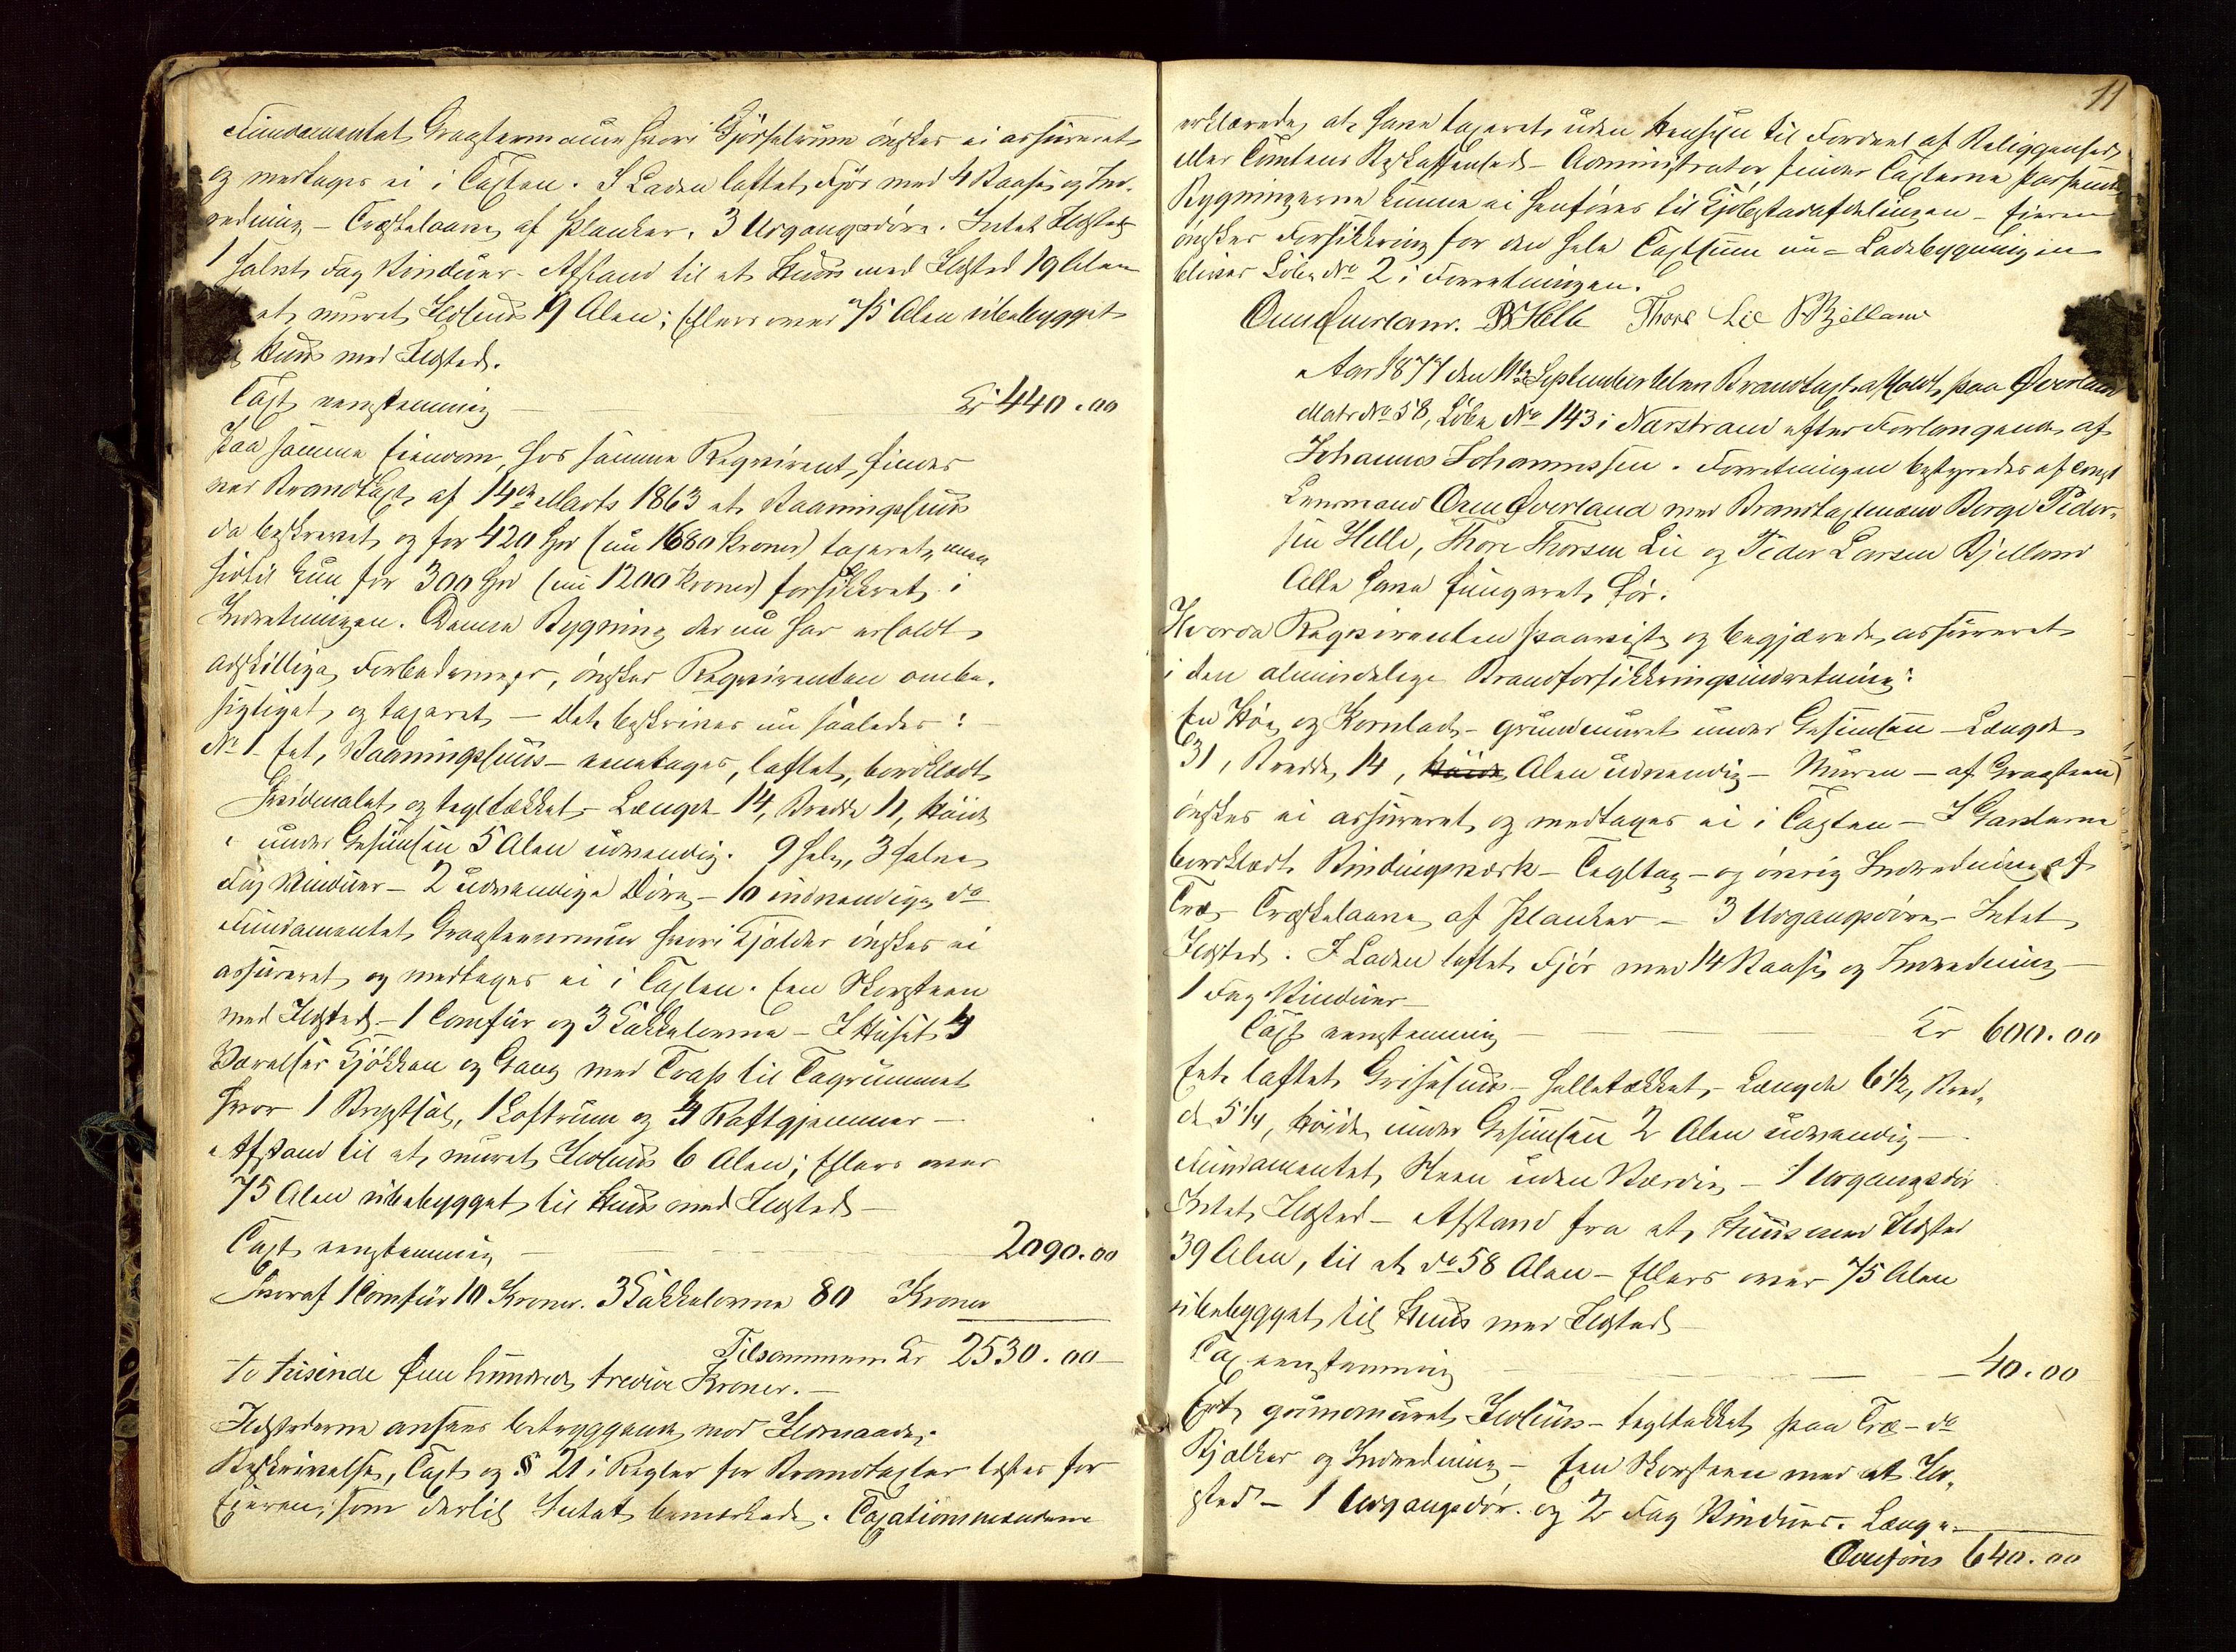 Fundamentet Graasteensmuur hvori Gjødselrum ønskes ei assureret
og medtages ei i Taxten. I Laden laftet Fjøs med 4 Baase og Ind-
redning – Træskelaave af Planker. 3 Udgangsdøre. Intet Ildsted
1 halvt Fag Vinduer – Afstand til et Huus med Ildsted 19 Alen
et muret Ildhuus 19 Alen; Ellers over 75 Alen ubebygget
til Huus med Ildsted.
Taxt eenstemmig – Kr 440.00
Paa samme Eiendom, hos samme Reqvirent, findes
ved Brandtaxt af 14de Marts 1863 et Vaaningshuus
da beskrevet og for 420 Spd (nu 1680 Kroner) taxeret, men
hidtil kun for 300 Spd (nu 1200 Kroner) forsikkret i
Indretningen. Denne Bygning der nu har erholdt
adskillige Forbedringer, ønsker Reqvirenten ombe-
sigtiget og taxeret – Det beskrives nu saaledes: –
No 1. Eet, Vaaningshuus – eenetages, laftet, bordklædt
hvidmalet og tegltækket – Længde 14, Bredde 11, Høide
under Gesimsen 5 Alen udvendig. 9 hele, 3 halve
Fag Vinduer – 2 udvendige Døre – 10 indvendige do
Fundamentet Graasteensmuur hvori Kjelder ønskes ei
assureret og medtages ei i Taxten. Een Skorsteen
med Ildsted – 1 Comfur og 3 Kakkelovne – I Huset 4
Værelser Kjøkken og Gang med Trap til Tagrummet
hvor 1 Brystsal, 1 Loftrum og 4 Raftgjemmer –
Afstand til et muret Ildhuus 6 Alen; Ellers over
75 Alen ubebygget til Huus med Ildsted –
Taxt eenstemmig – 2090.00
Hvoraf 1 Comfur 10 Kroner. 3 Kakkelovne 80 Kroner
Tilsammen Kr 2530.00 –
To tusinde fem hundrede tredive Kroner. –
Ildstederne ansees betryggende mod Ildsvaade.
Beskrivelse, Taxt og § 21 i Regler for Brandtaxter læstes for
Eieren, som dertil Intet bemærkede. Taxationsmændene
11
erklærede, at have taxeret uden Hensyn til Fordeel af Beliggenhed
eller Tomtens Beskaffenhed – Administrator finder Taxterne passende
Bygningerne kunne ei henføres til Kjøbstadafdelingen – Eieren
ønsker Forsikkring for den hele Taxtsum nu – Ladebygningen
bliver Løbe No 2 i Forretningen.
Orm Øverland. B Helle Thore Lie P Bjelland
Aar 1877 den 11te September blev Brandtaxt afholdt paa Øverland
Matr No 58, Løbe No 143 i Nærstrand efter Forlangende af
Johannes Johannessen. Forretningen bestyredes af const
Lensmand Orm Øverland med Brandtaxtmænd Borge Peder-
sen Helle, Thore Thorsen Lie og Peder Larsen Bjelland
Alle have fungeret før.
Hvorda Reqvirenten paaviste og begjærede assureret
i den almindelige Brandforsikkringsindretning:
En Høe og Kornlade – grundmuret under Gesimsen – Længde
31, Bredde 14, Høide Alen udvendig – Muren – af Graasteen
ønskes ei assureret og medtages ei i Taxten – I Gavlerne
bordklædt Bindingsværk – Tegltag – og øvrig Indredning af
Træ – Træskelaave af Planker – 3 Udgangsdøre – Intet
Ildsted. I Laden laftet Fjøs med 14 Baase og Indredning –
1 Fag Vinduer –
Taxt eenstemmig – Kr 600.00
Eet laftet Grisehuus – helletækket – Længde 6½, Bred-
de 5¼, Høide under Gesimsen 2 Alen udvendig –
Fundamentet Steen uden Værdie – 1 Udgangsdør
Intet Ildsted – Afstand fra et Huus med Ildsted
39 Alen, til et do 58 Alen – Ellers over 75 Alen
ubebygget til Huus med Ildsted –
Taxt eenstemmig – 40.00
Eet grundmuret Ildhuus – tegltækket paa Træ – do
Bjælker og Indredning – Een Skorsteen med et Ild-
sted – 1 Udgangsdør og 2 Fag Vinduer. Længde
Overføres 640.00